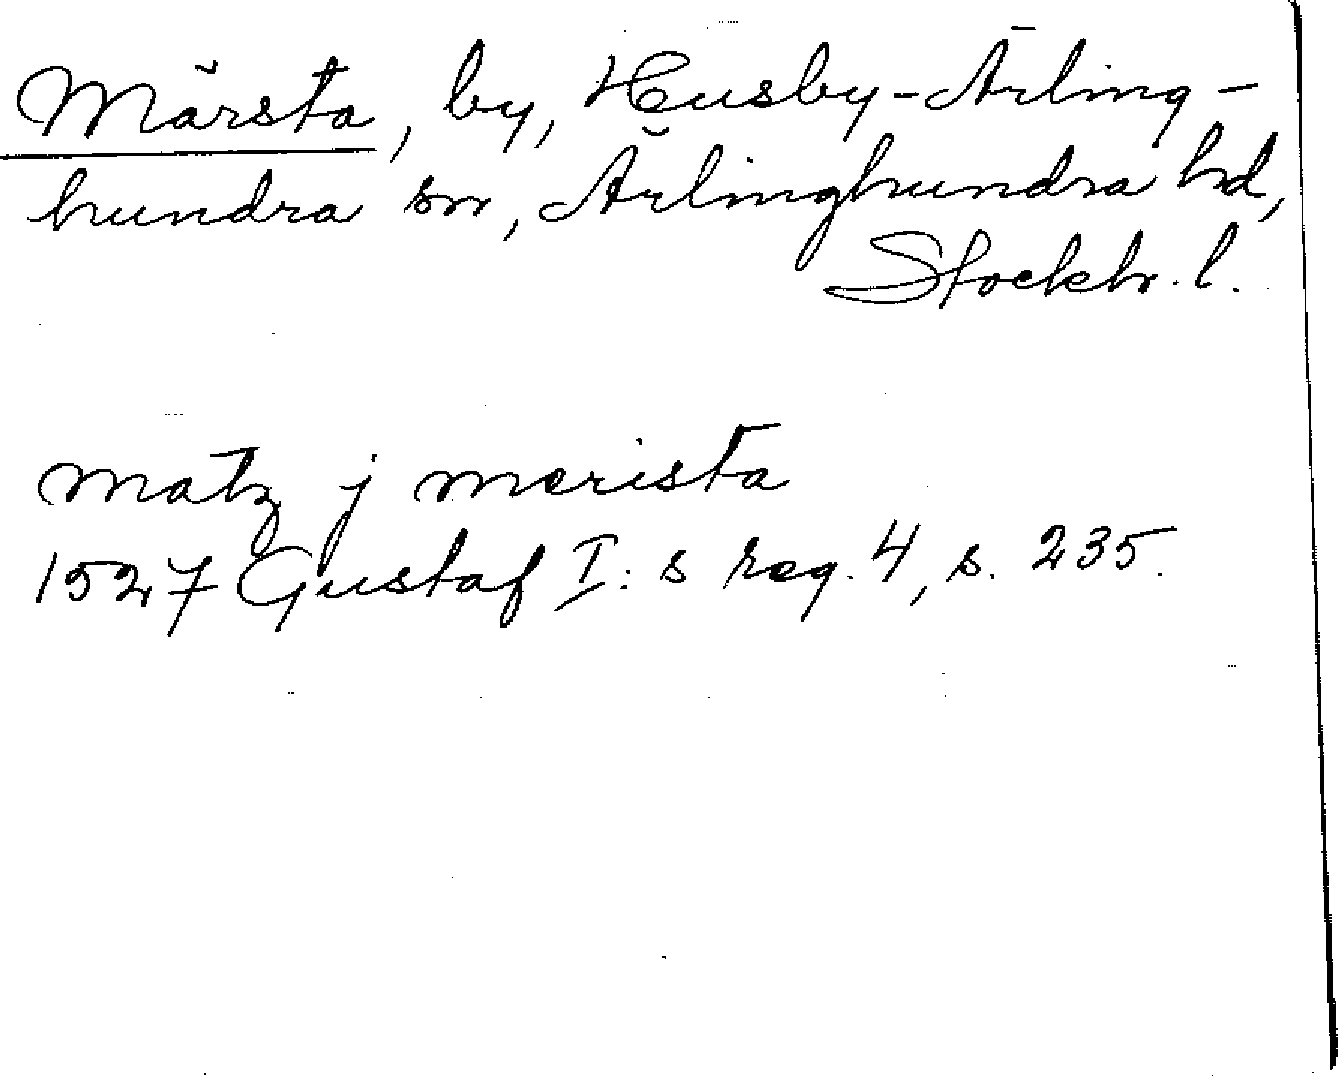 Märsta, by, Husby-Ärling-
hundra sn, Ärlinghundra hd,
Stockh. l.
matz j merista
1527 Gustaf I:s reg. 4, s. 235.